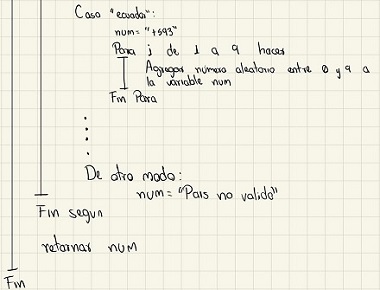 Caso "ecuador":
num= "+593"
Para j de 1 a 9 hacer
Agregar numero aleatorio entre 0 y 9 a
la variable num
Fin Para
De otro modo:
num= "Pais no valido"
Fin segun
retornar num
Fin